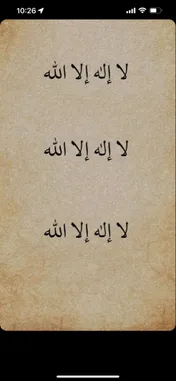 10:26
لا إله إلا الله
لا إله إلا الله
لا إله إلا الله